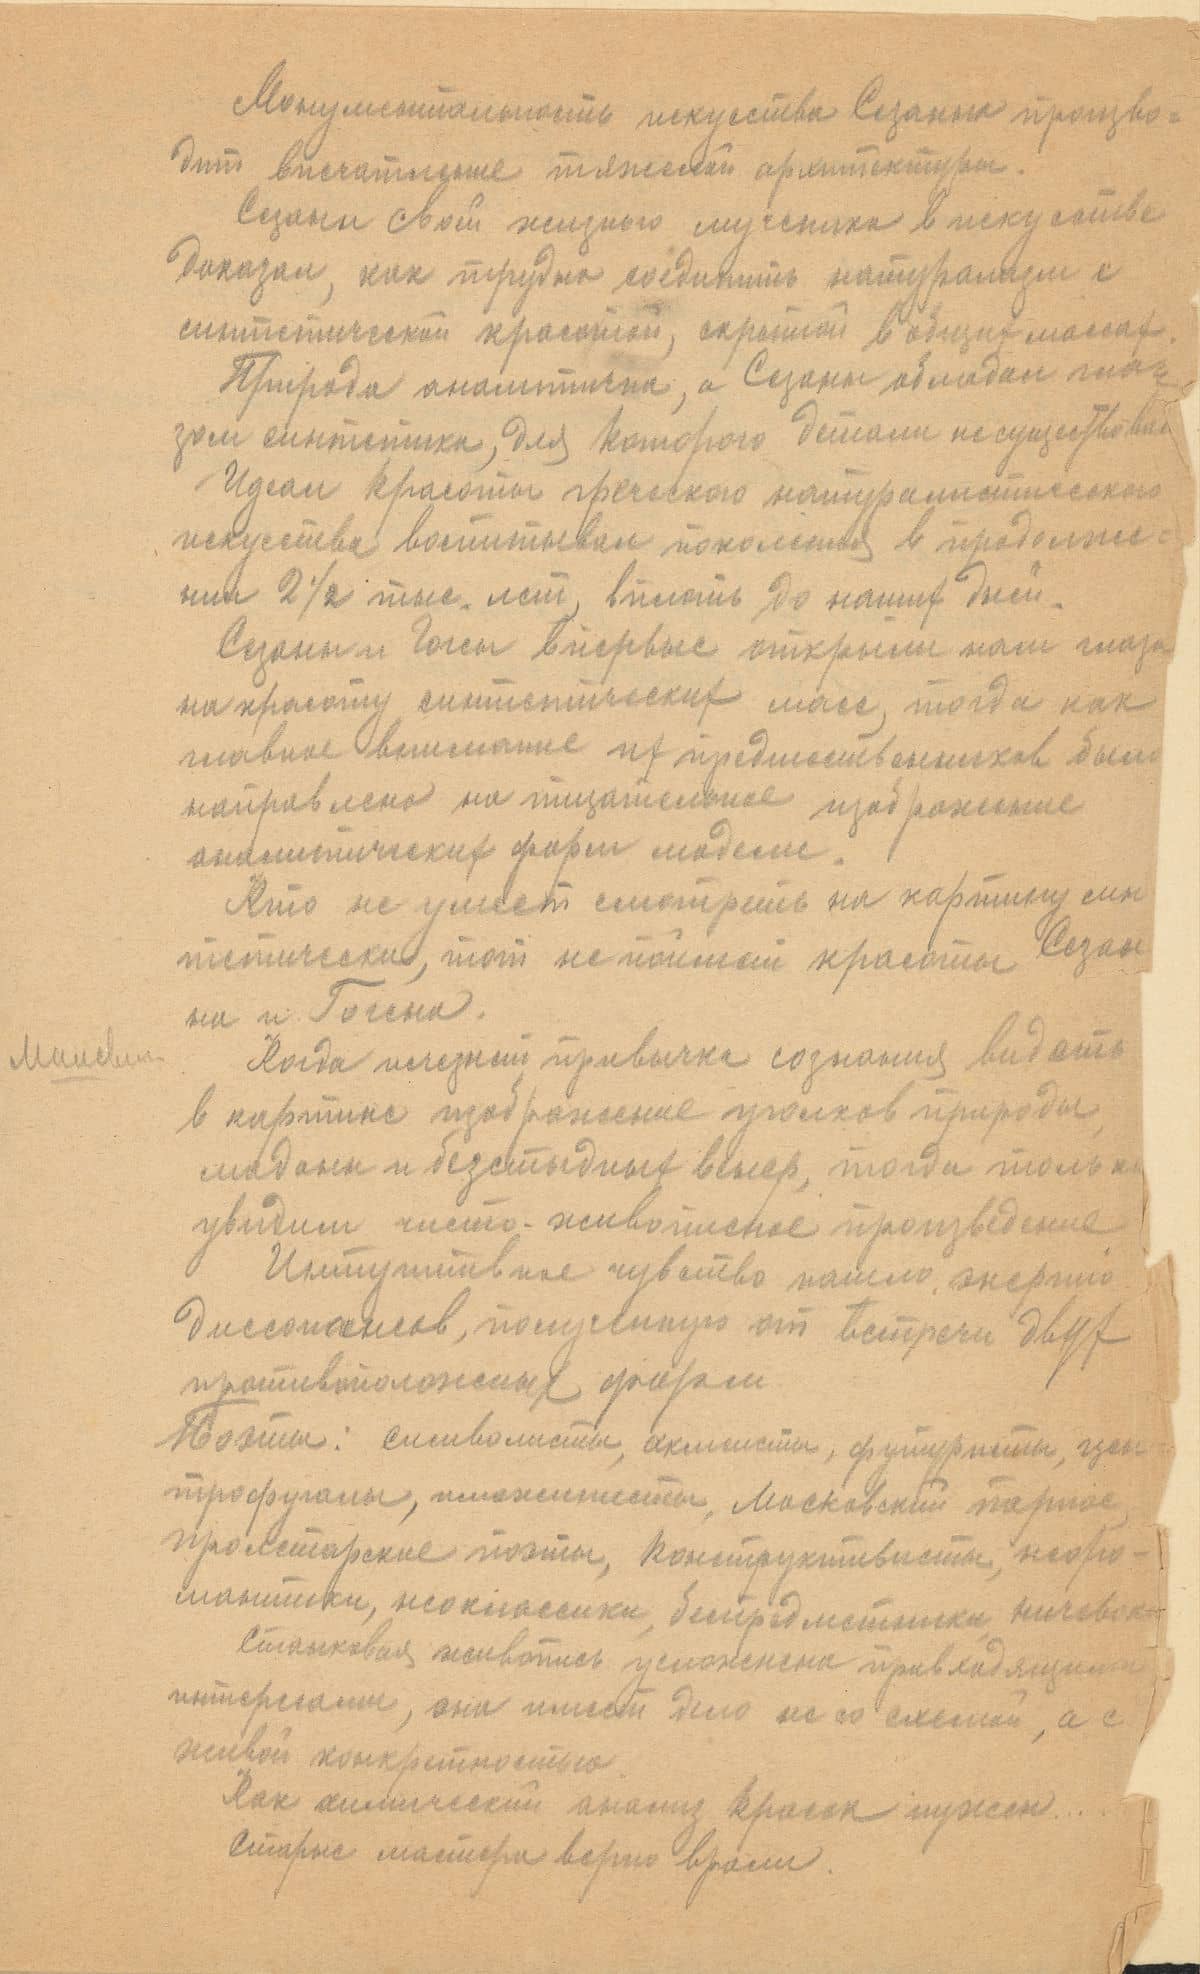 Монументальность искусства Сезанна произво-
дит впечатление тяжелой архитектуры.
Сезанн свой жизнью мученика в искусстве
доказал, как трудно соединить натурализм с
синтетической красотой, скрытой в общих массах.
Природа аналитична, а Сезанн обладал гла-
зом синтетика, для которого детали не существовали
Идеал красоты греческого натуралистического
искусства воспитывал поколения в продолже-
нии 2½ тыс. лет, вплоть до наших дней.
Сезанн и Гоген впервые открыли нам глаза
на красоту синтетических масс, тогда как
главное внимание их предшественников было
направлено на тщательное изображение
аналитических форм модели.
Кто не умеет смотреть на картину син
тетически, тот не поймет красоты Сезан
на и Гогена.
Малевич
Когда исчезнет привычка сознания видеть
в картине изображение уголков природы,
мадонн и безстыдных венер, тогда только
увидим чисто-живописное произведение
Интуитивное чувство нашло энергию
диссонансов, полученную от встречи двух
противоположных форм
Поэты: символисты, акмеисты, футуристы, цен-
трофугалы, имажинисты, Московский парнас,
пролетарские поэты, конструктивисты, неоро-
мантики, неоклассики, беспредметники, ничевоки
Станковая живопись усложнена привходящими
интересами, она имеет дело не со схемой, а с
живой конкретностью.
Как химический анализ красок нужен....
Старые мастера верно врали.